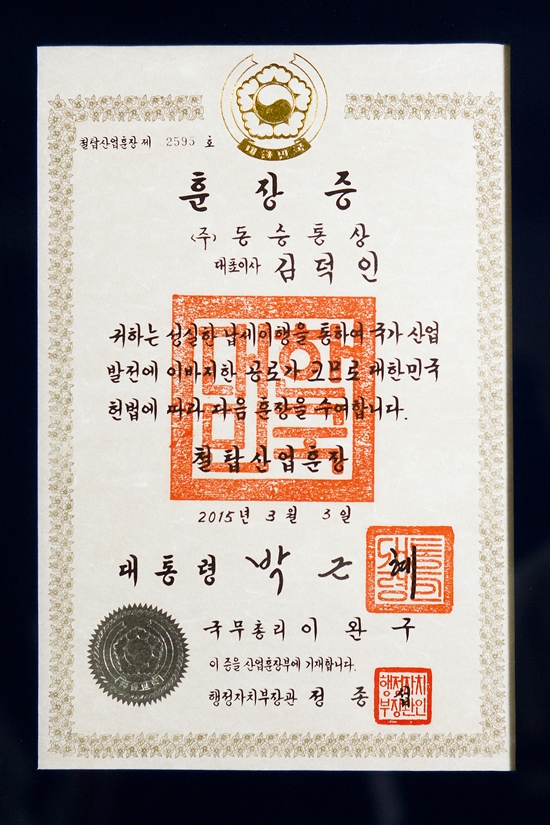 대한민국
철탑산업훈장 제 2595 호
훈장증
(주) 동승통상
대표이사 김덕인
귀하는 성실한 납세이행을 통하여 국가 산업
발전에 이바지한 공로가 크므로 대한민국
헌법에 따라 다음 훈장을 수여합니다.
철탑산업훈장
2015년 3월 3일
대통령 박근혜
국무총리 이완구
이 증을 산업훈장부에 기재합니다.
행정자치부장관 정종섭
행정자치
부장관인